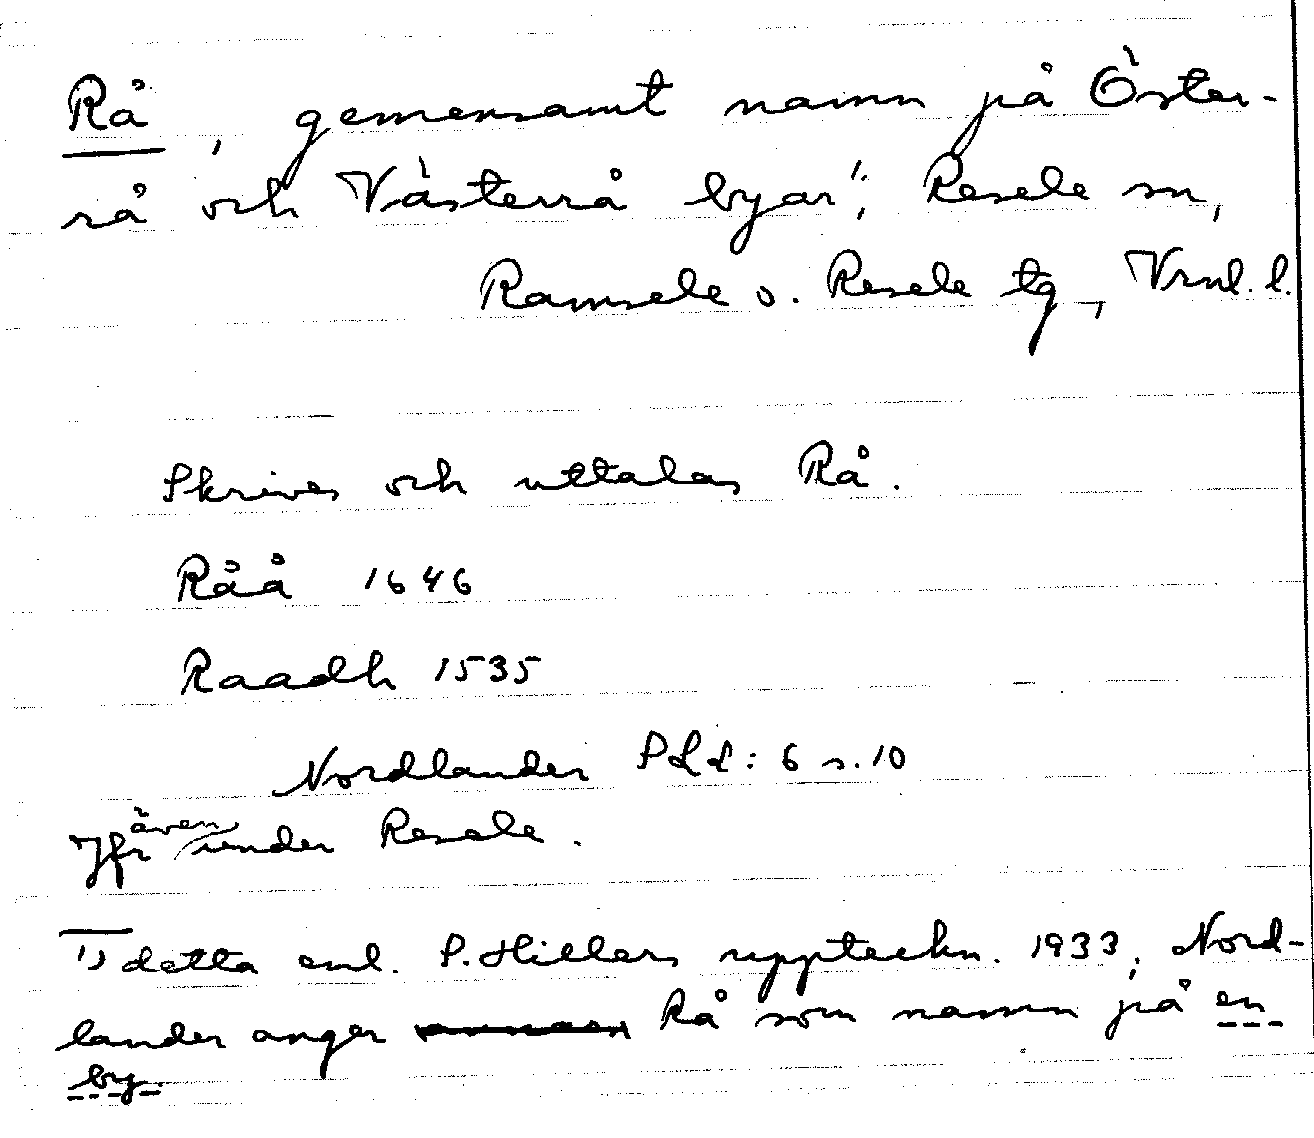 Rå, gemensamt namn på Öster-
rå och Västerrå byar¹⁾, Resele sn,
Ramsele o. Resele tg, Vrnl. l.
Skrives och uttalas Rå.
Råå 1646
Raadh 1535
Nordlander PLd: 6 s. 10
Jfr även under Resele.
¹⁾ detta enl. P. Hillers uppteckn. 1933, Nord-
lander anger Rå som namn på en
by.